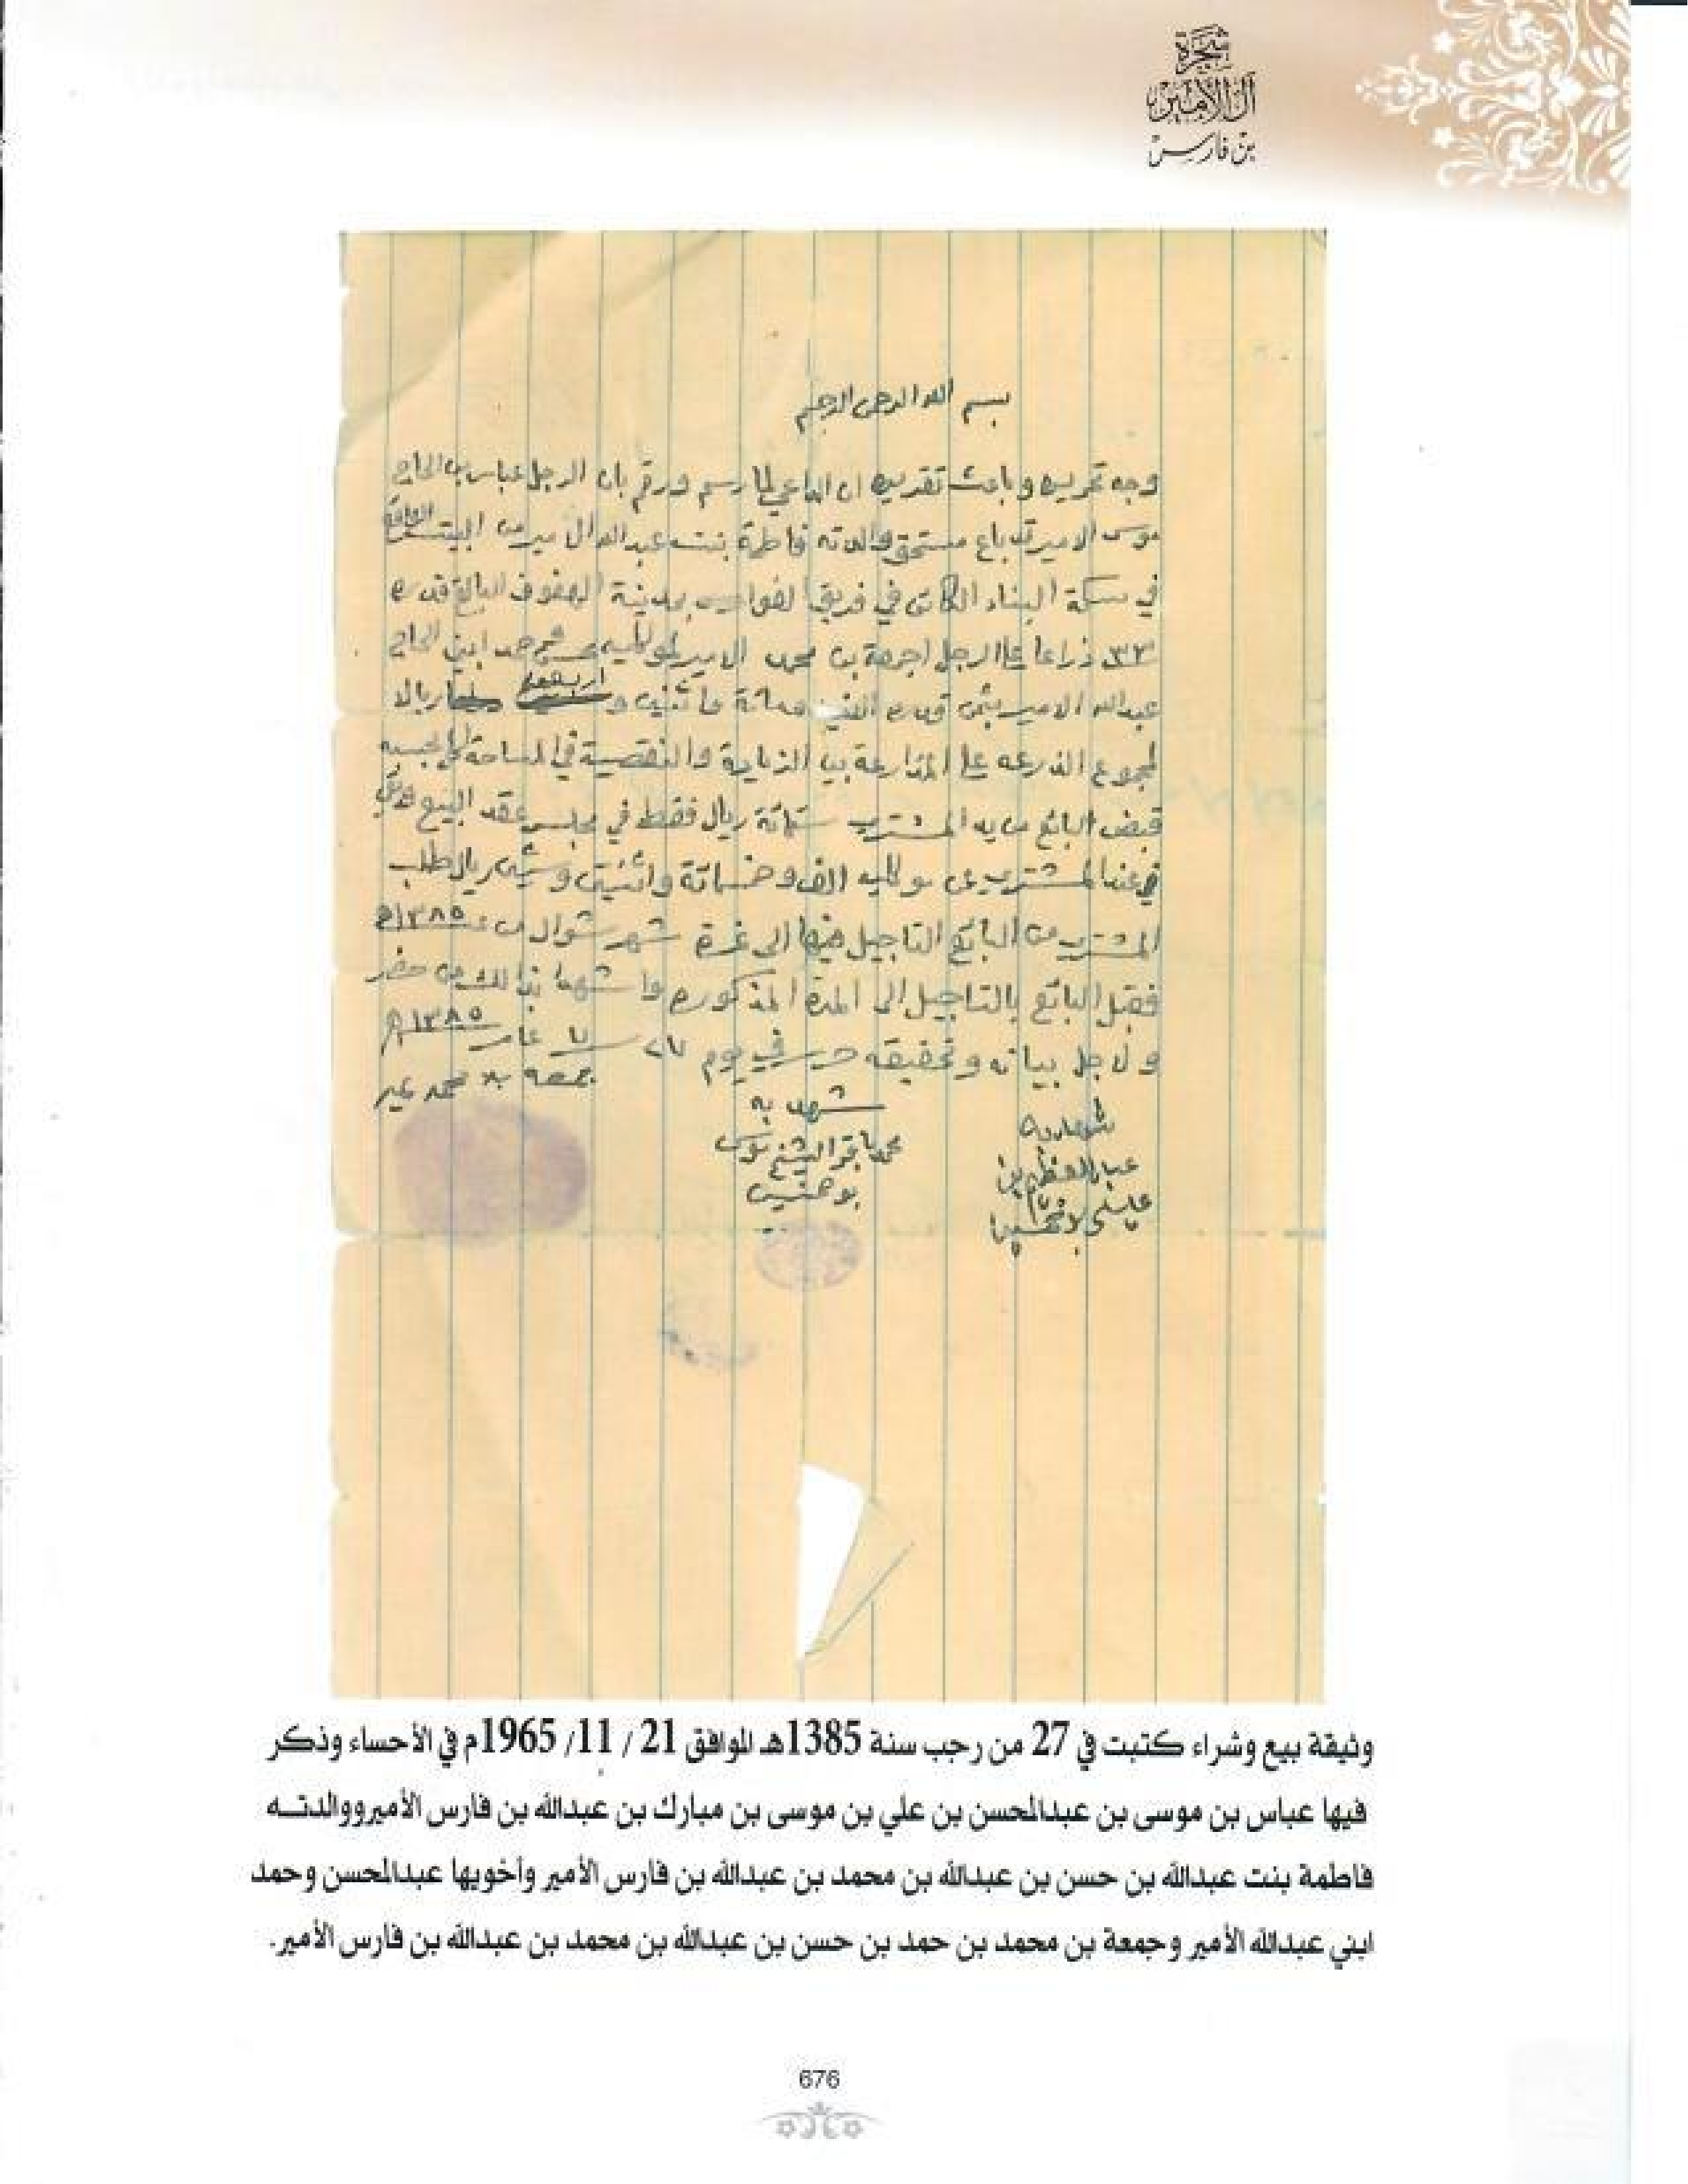 شجرة
آل الأمير
بن فارس
بسم الله الرحمن الرحيم
وجه تحريره وباعث تقديره ان الداعي لما رسم ورقم بان الرجل عباس بن الحاج
موسى الامير قد باع مستحق والدته فاطمة بنت عبدالله ال امير من البيت الواقع
في سكة البناء الكائن في فريق الفوارس بمدينة الهفوف البالغ قدره
٣٣ ذراعا على الرجل اجمعة بن محمد الامير لموكليه محسن وحمد ابني الحاج
عبدالله الامير بثمن قدره الفين ومائة واثنين و اربعون ريالا
لمجموع الذرعه على المذارعة بين الزيادة والنقصية في المساحة
قبض البائع من يد المشتري ستمائة ريال فقط في مجلس عقد البيع
عند المشتري عن موكليه الف وخمسمائة واثنين وستين ريال طلب
المشتري من البائع التاجيل فيها الى غرة شهر شوال من ١٣٨٥ه
فقبل البائع بالتاجيل الى المدة المذكوره واشهدا بذالك من حضر
ولاجل بيانه وتحقيقه حرر في يوم ٢٧ ٧ عام ١٣٨٥ه
جمعه محمد مير
شهد به
محمد باقر الشيخ موسى
بوخمسين
شهد به
عبد العظيم بن
وثيقة بيع وشراء كتبت في 27 من رجب سنة 1385هـ الموافق 21 / 11/ 1965م في الأحساء وذكر
فيها عباس بن موسى بن عبدالمحسن بن علي بن موسى بن مبارك بن عبدالله بن فارس الأميرووالدتــه
فاطمة بنت عبدالله بن حسن بن عبدالله بن محمد بن عبدالله بن فارس الأمير وأخويها عبدالمحسن وحمد
ابني عبدالله الأمير وجمعة بن محمد بن حمد بن حسن بن عبدالله بن محمد بن عبدالله بن فارس الأمير.
676